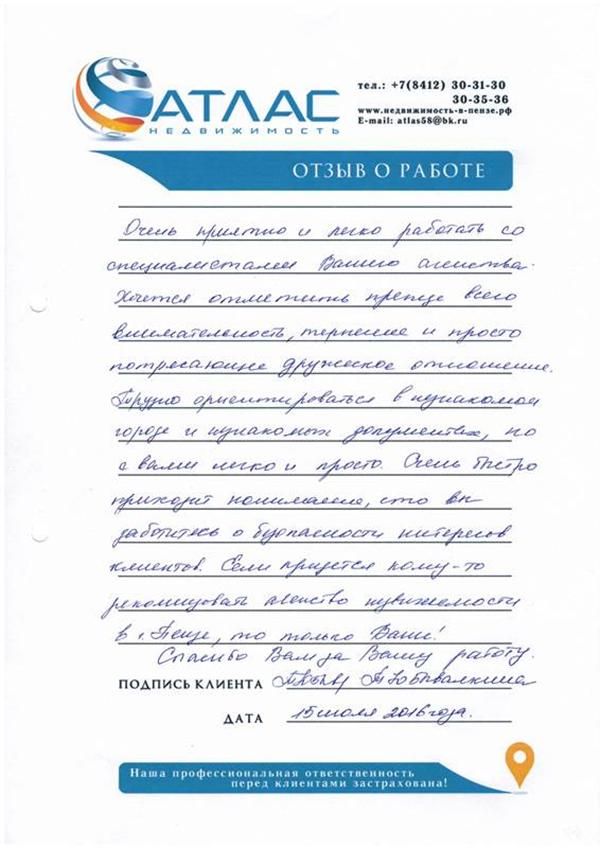 АТЛАС
НЕДВИЖИМОСТЬ
тел.: +7(8412) 30-31-30
30-35-36
www.недвижимость-в-пензе.рф
E-mail: atlas58@bk.ru
ОТЗЫВ О РАБОТЕ
Очень приятно и легко работать со
специалистами Вашего агенства.
Хочется отметить прежде всего
внимательность, терпение и просто
потрясающее дружеское отношение.
Трудно ориентироваться в незнакомом
городе и незнакомых документах, но
с вами легко и просто. Очень быстро
приходит понимание, что вы
заботитесь о безопасности интересов
клиентов. Если придется кому-то
рекомендовать агенство недвижемости
в г. Пензе, то только Ваше!
Спасибо Вам за Вашу работу.
ПОДПИСЬ КЛИЕНТА
ДАТА 15 июля 2016 года.
Наша профессиональная ответственность
перед клиентами застрахована!